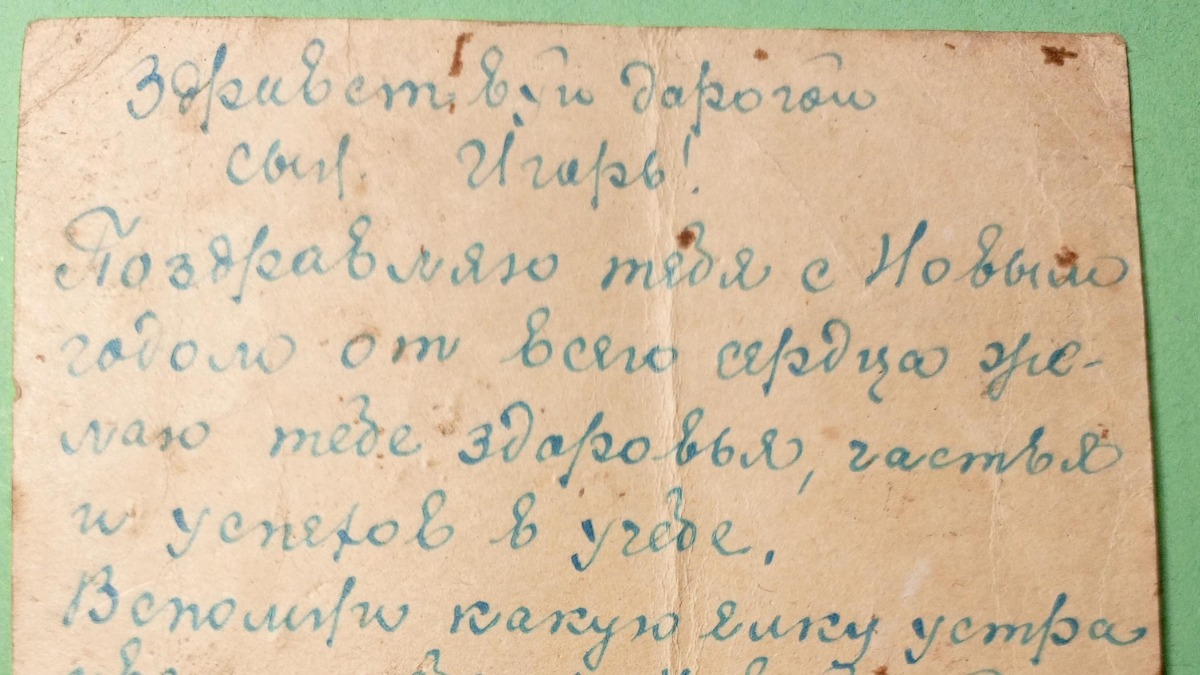 Здравствуй дорогой
сын Игорь!
Поздравляю тебя с Новым
годом от всего сердца же-
лаю тебе здоровья, частья
и успехов в учебе.
Вспомни какую елку устра